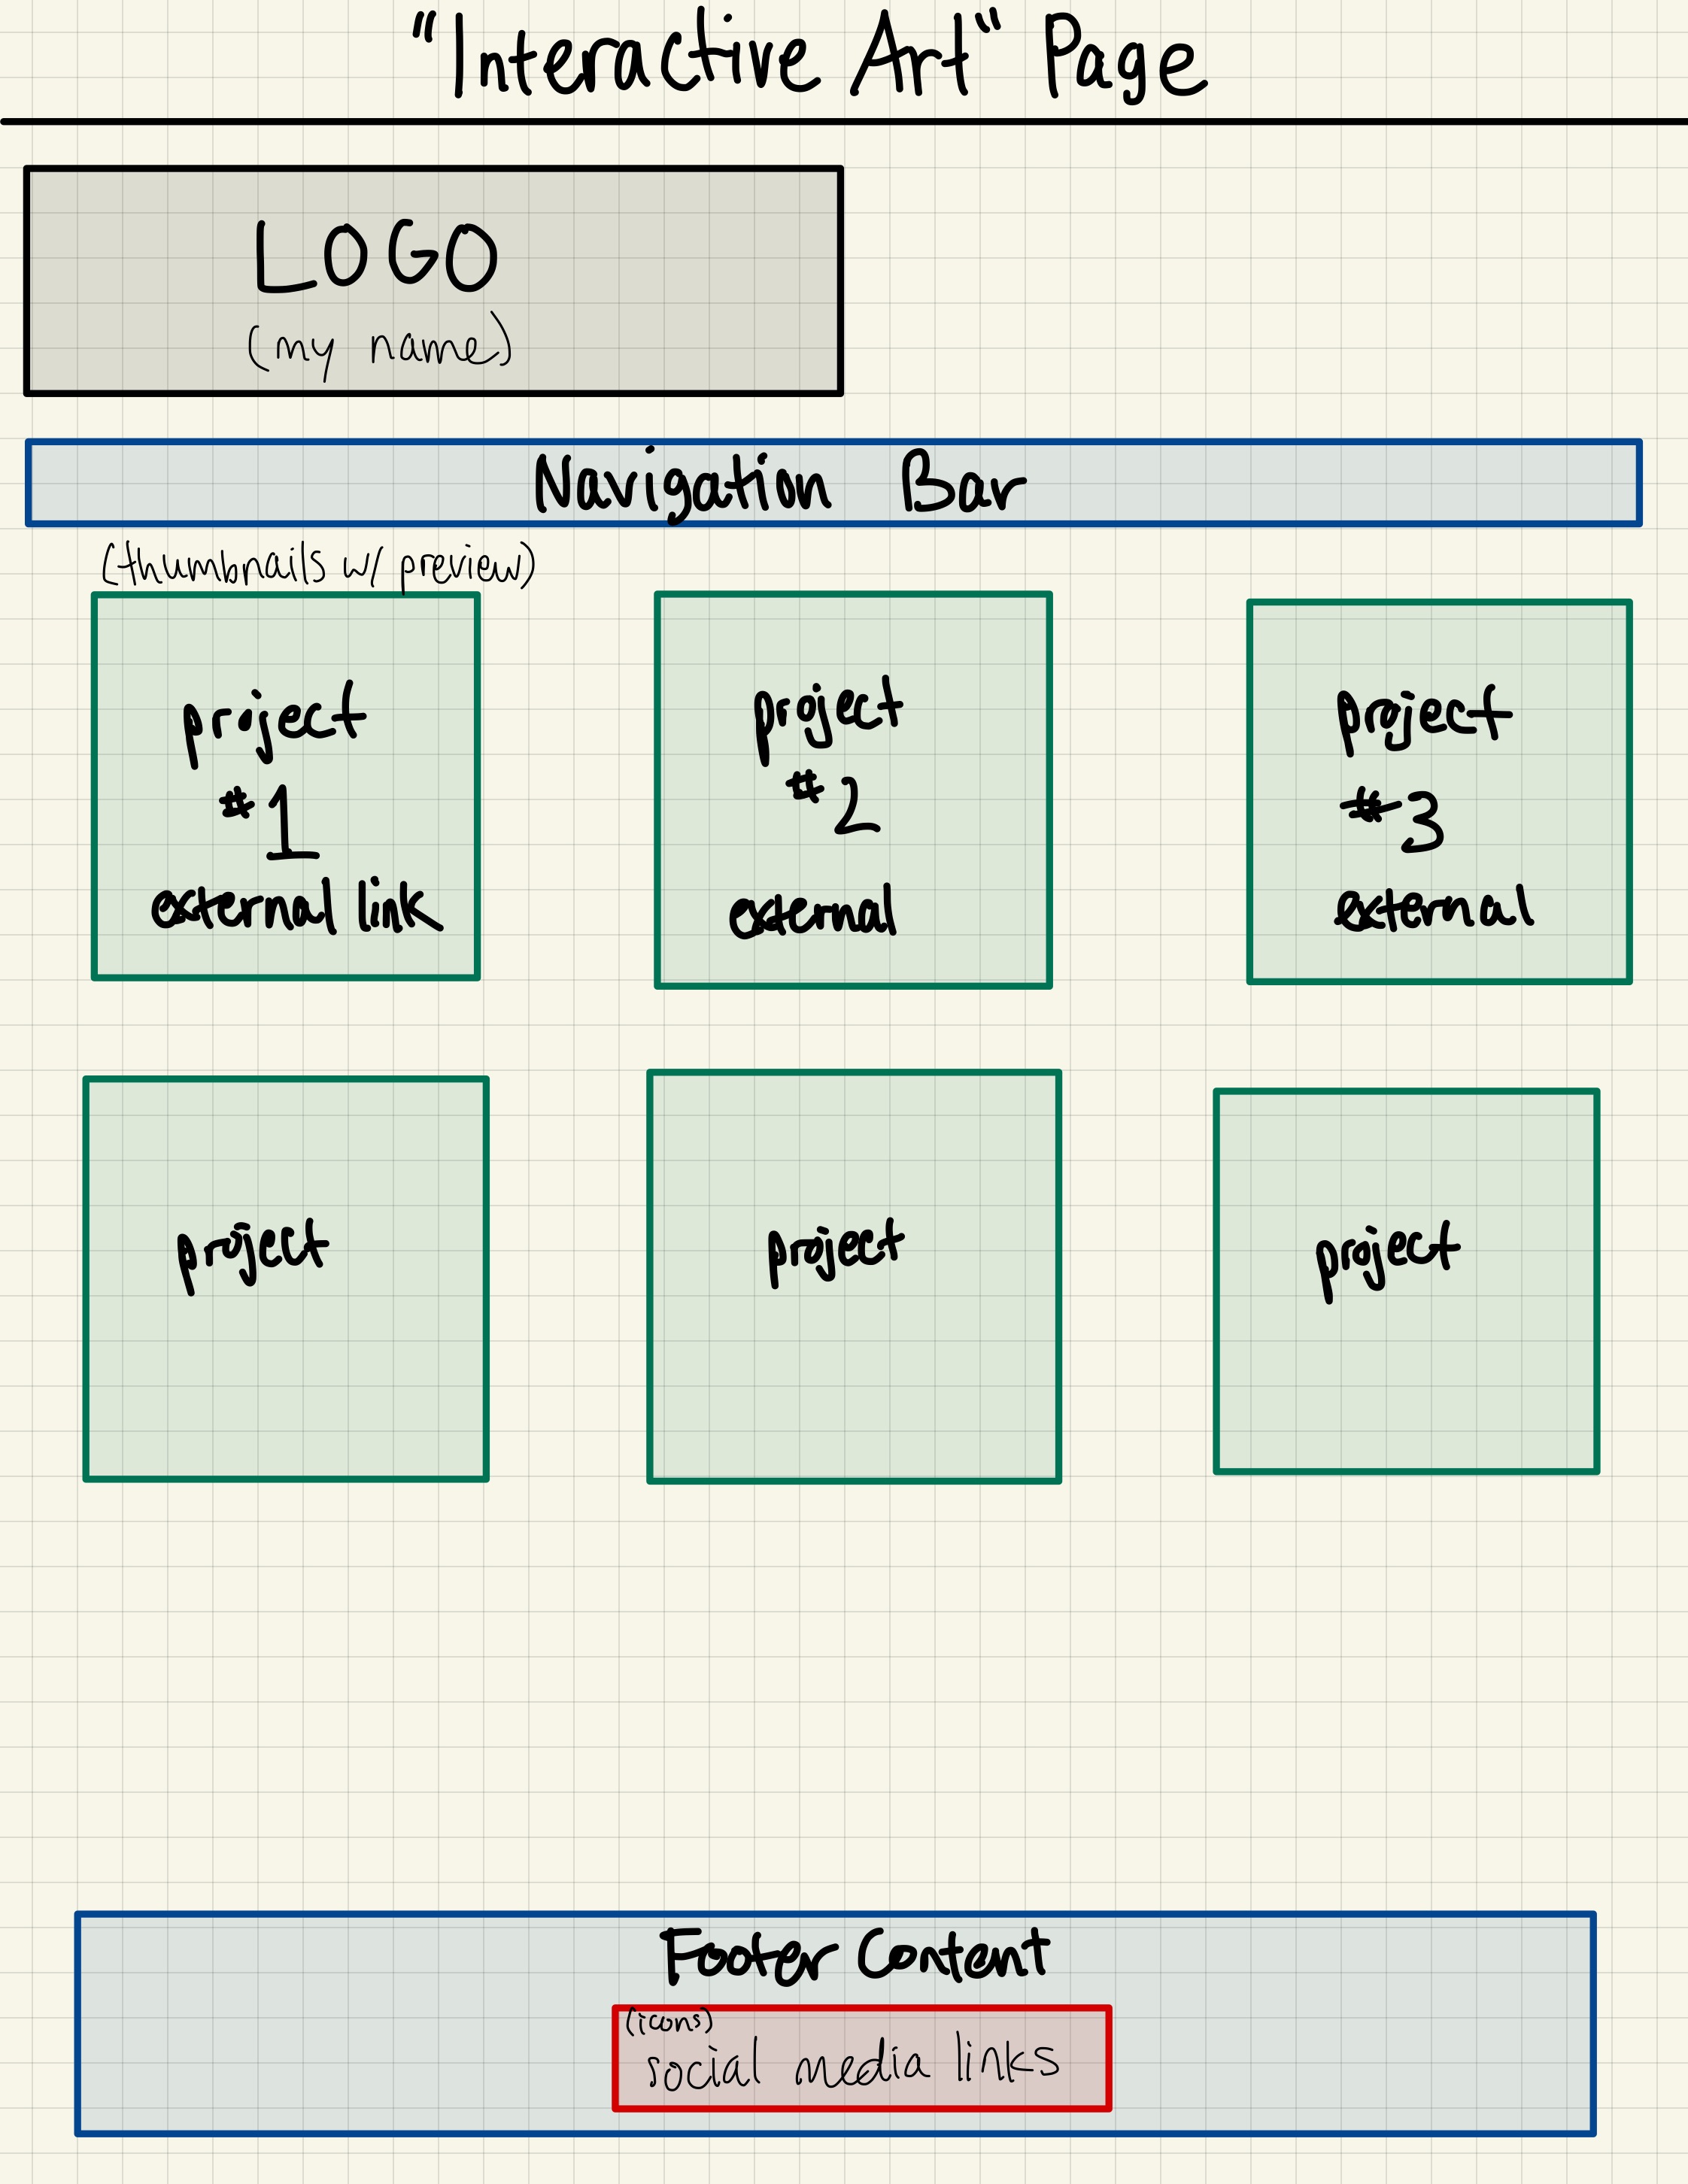 "Interactive Art" Page
LOGO
(my name)
Navigation Bar
(thumbnails w/ preview)
project
#1
external link
project
#2
external
project
#3
external
project
project
project
Footer Content
(icons)
social media links